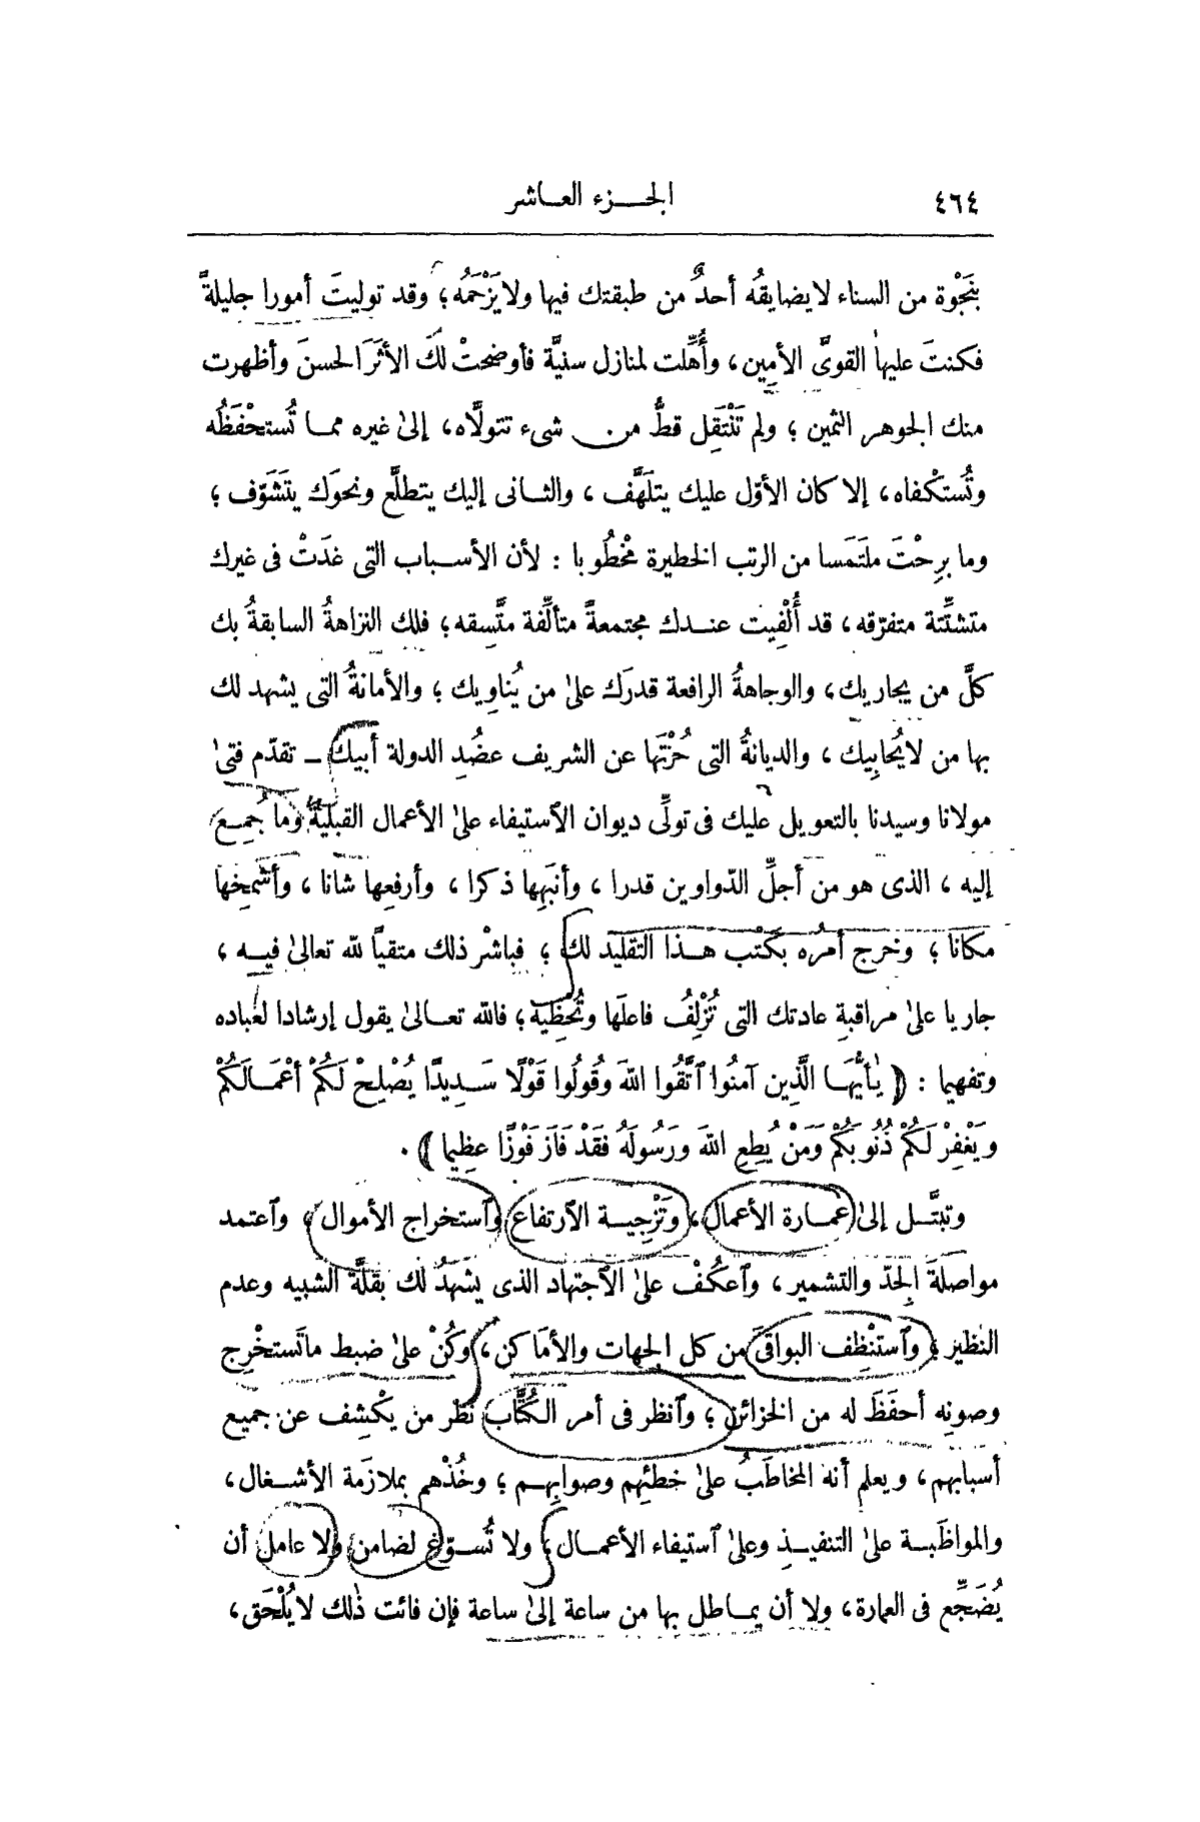 ٤٦٤ الجزء العاشر
بنَجْوة من السناء لا يضايقُه أحدٌ من طبقتك فيها ولا يَزْحَمُه؛ وقد توليتَ أمورا جليلةً
فكنتَ عليها القوىَّ الأمين، وأُهِّلت لمنازل سنيَّة فأوضحتْ لكَ الأثَرَ الحسنَ وأظهرت
منك الجوهر الثمين؛ ولم تَنْتَقِل قطُّ من شىء تتولَّاه، إلىٰ غيره مما تُستحْفَظُه
وتُستكْفاه، إلا كان الأوّل عليك يتلَهَّف، والثانى إليك يتطلَّع ونحوَك يتَشَوّف؛
وما برِحْتَ ملتَمَسا من الرتب الخطيرة مخْطُوبا : لأن الأسباب التى غدَتْ فى غيرك
متشتِّتة متفرّقه، قد أُلْفِيت عندك مجتمعةً متألِّفة متَّسِقه؛ فلك النزاهةُ السابقةُ بك
كلَّ من يجاريك، والوجاهةُ الرافعة قدرَك علىٰ من يُناوِيك؛ والأمانةُ التى يشهد لك
بها من لا يُحابِيك، والديانةُ التى حُزْتَها عن الشريف عضُدِ الدولة أبيك ــ تقدّم فتىٰ
مولانا وسيدنا بالتعويل عليك فى تولِّى ديوان الاستيفاء علىٰ الأعمال القبليَّة وما جُمِع
إليه، الذى هو من أجلِّ الدّواوين قدرا، وأنبَهِها ذكرا، وأرفعِها شانا، وأشمَخِها
مكانا؛ وخرج أمرُه بكَتْب هذا التقليد لك؛ فباشرْ ذلك متقيًّا لله تعالىٰ فيه،
جاريا علىٰ مراقبةِ عادتك التى تُزْلِفُ فاعلَها وتُحْظِيه؛ فالله تعالىٰ يقول إرشادا لعباده
وتفهيما : ﴿ يٰأَيُّهَا الَّذِين آمنُوا ٱتَّقُوا اللهَ وقُولُوا قَوْلًا سَدِيدًا يُصْلِحْ لَكُمْ أعْمَالَكُمْ
ويَغْفِرْ لَكُمْ ذُنُوبَكُمْ وَمَنْ يُطِعِ اللهَ ورَسُولَهُ فَقَدْ فَازَ فَوْزًا عظِيما ﴾ .
وتبتَّل إلىٰ عمارة الأعمال، وتَزْجِية الآرتفاع وٱستخراج الأموال؛ وٱعتمد
مواصلةَ الجِدّ والتشمير، وٱعكُفْ علىٰ الآجتهاد الذى يشهَدُ لك بقلَّة الشبيه وعدم
النظير؛ وٱستنْظِف البواقىَ من كل الجهات والأماكن، وكُنْ علىٰ ضبط ما تَستخْرِج
وصونِه أحفَظَ له من الخزائن؛ وٱنظر فى أمر الكُتَّاب نظر من يكْشِف عن جميع
أسبابهم، ويعلم أنه المخاطَبُ علىٰ خطئِهم وصوابِهم؛ وخُذْهم بملازَمة الأشغال،
والمواظَبة علىٰ التنفيذِ وعلىٰ ٱستيفاء الأعمال؛ ولا تُسوّغ لضامن ولا عامل أن
يُضَجِّع فى العمارة، ولا أن يماطل بها من ساعة إلىٰ ساعة فإن فائت ذٰلك لا يُلْحَق،